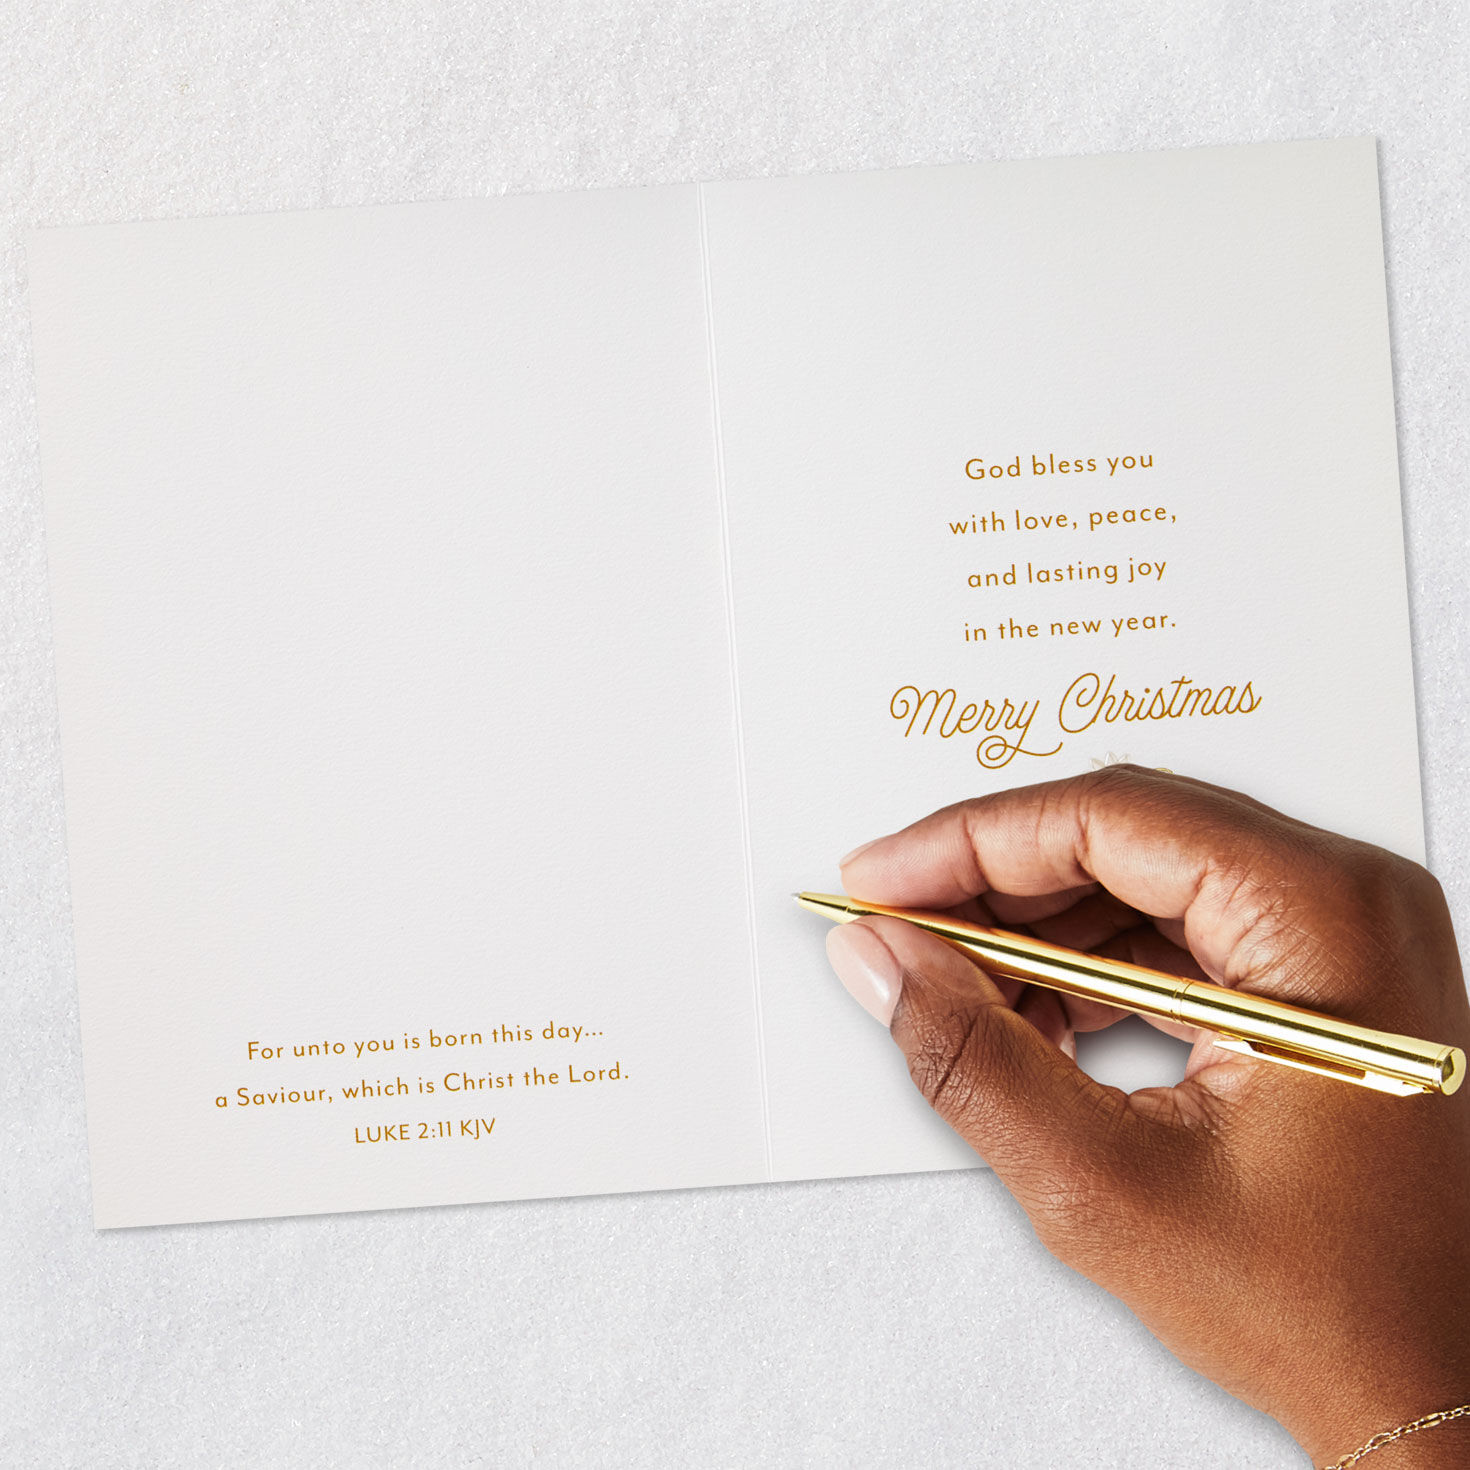 For unto you is born this day...
a Saviour, which is Christ the Lord.
LUKE 2:11 KJV
God bless you
with love, peace,
and lasting joy
in the new year.
Merry Christmas